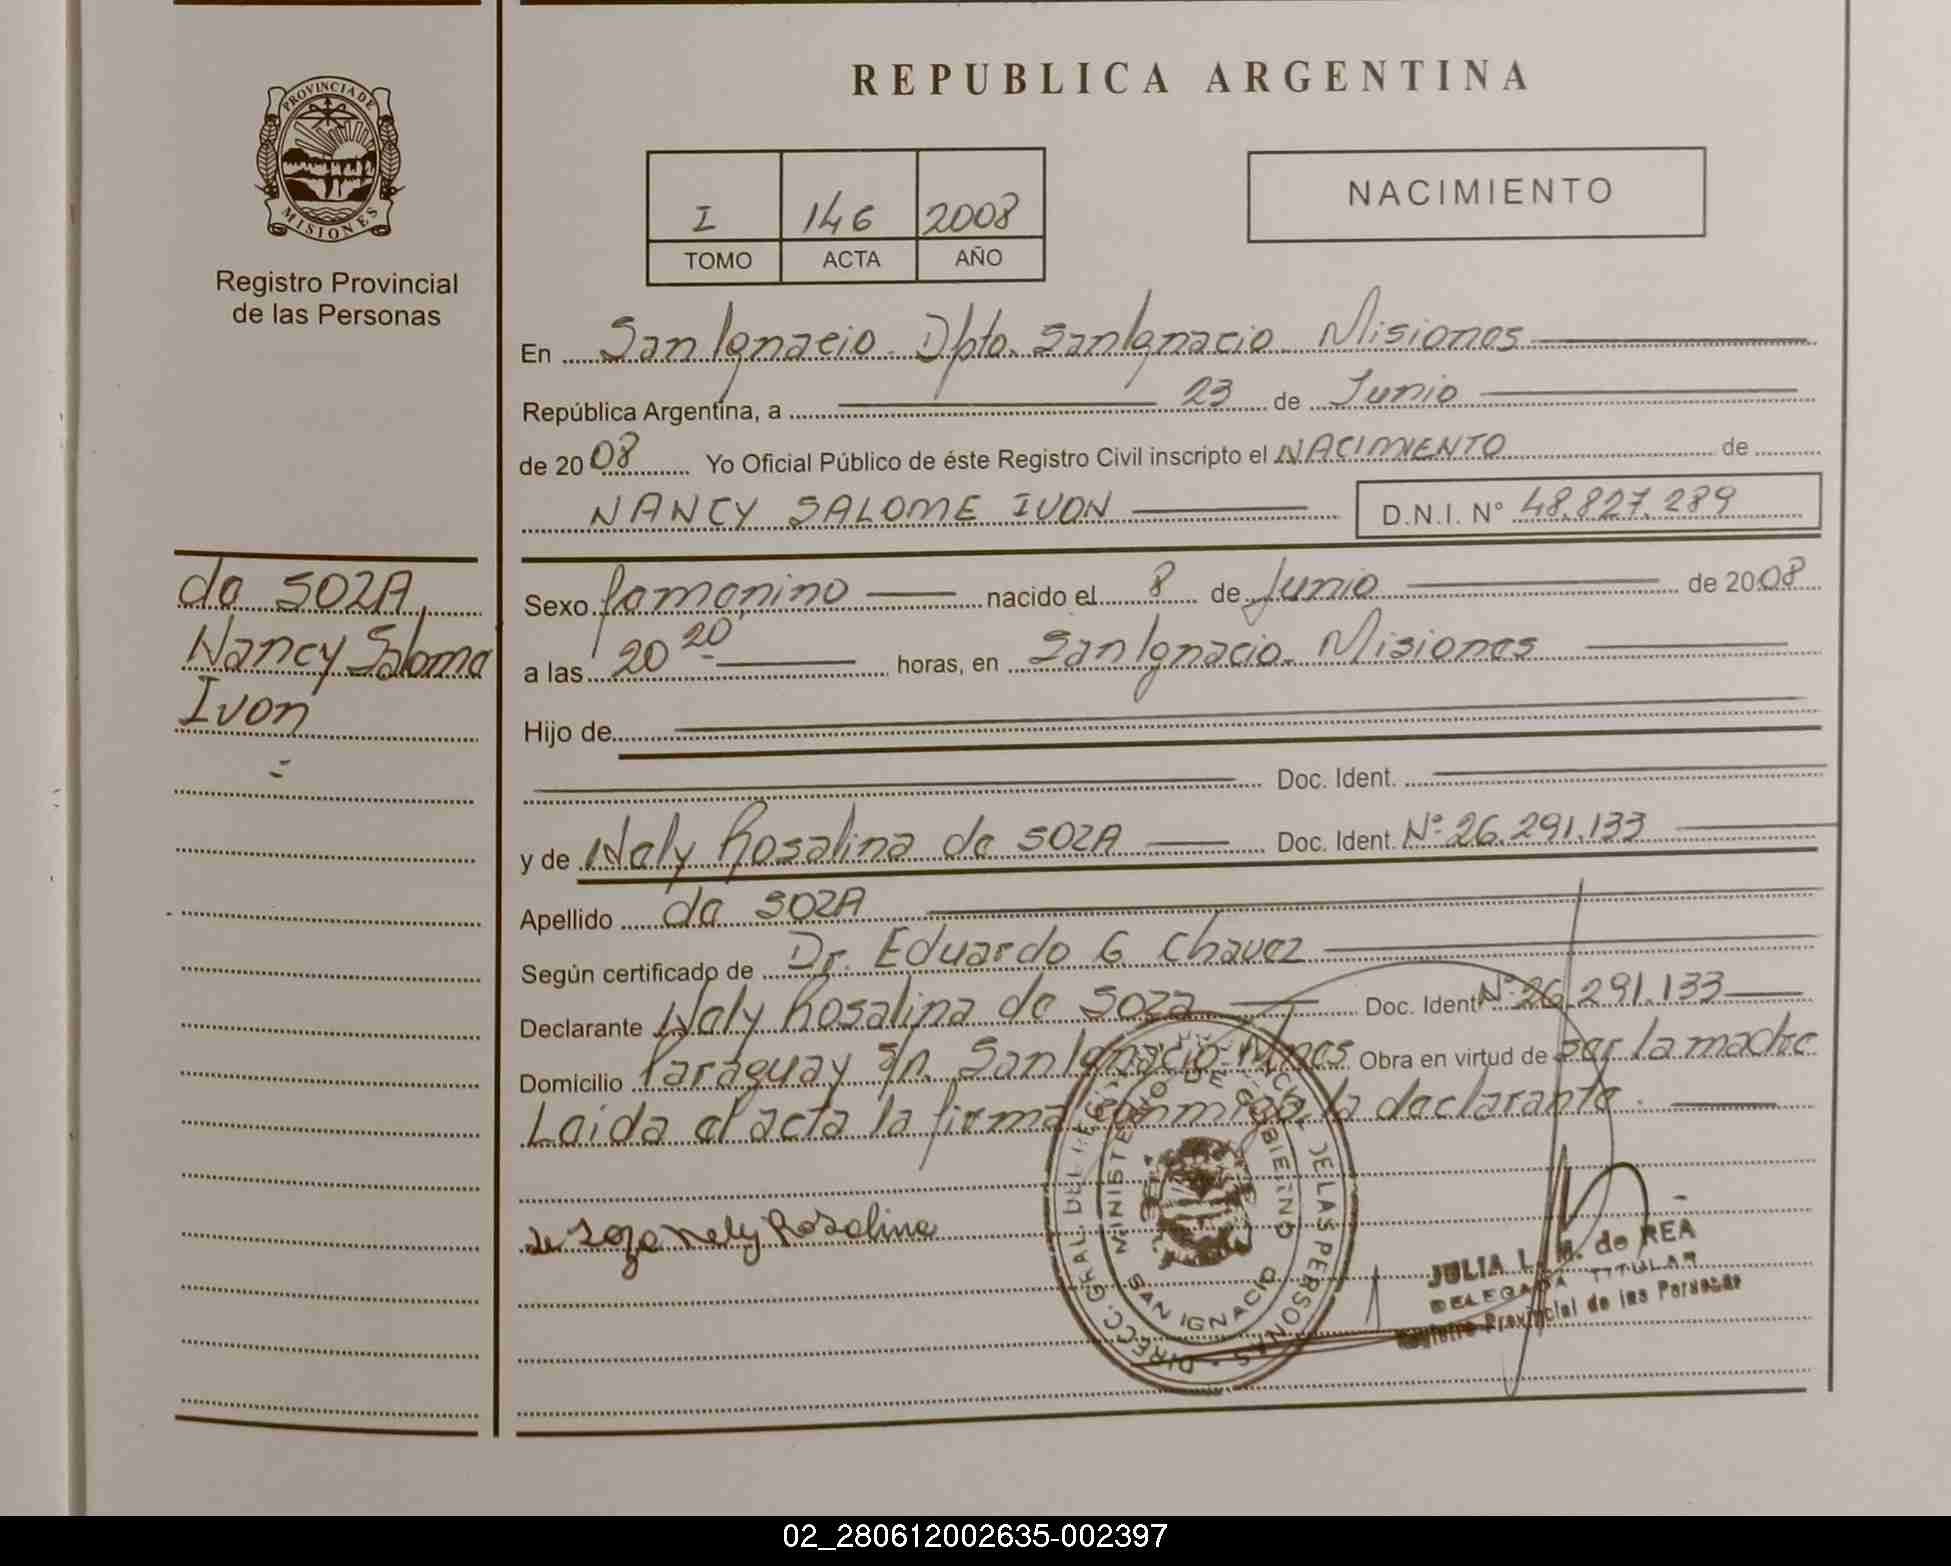 REPUBLICA ARGENTINA
PROVINCIA DE
MISIONES
Registro Provincial
de las Personas
I 146 2008
TOMO ACTA AÑO
NACIMIENTO
En San Ignacio Dpto. San Ignacio Misiones
República Argentina, a 23 de Junio
de 2008 Yo Oficial Público de éste Registro Civil inscripto el NACIMIENTO de
NANCY SALOME IVON D.N.I. N° 48.827.289
de SOZA,
Nancy Salome
Ivon
Sexo femenino nacido el 8 de Junio de 2008
a las 20 20 horas, en San Ignacio Misiones
Hijo de
Doc. Ident.
y de Nely Rosalina de SOZA Doc. Ident. N° 26.291.133
Apellido de SOZA
Según certificado de Dr. Eduardo G Chavez
Declarante Nely Rosalina de Soza Doc. Ident N° 26.291.133
Domicilio Paraguay s/n. San Ignacio Mnes Obra en virtud de ser la madre
Leida el acta la firma conmigo la declarante.
de Soza Nely Rosalina
DIRECC. GRAL. DEL REG. PROVINCIAL DE LAS PERSONAS
MINISTERIO DE GOBIERNO
SAN IGNACIO
JULIA L. M. de REA
DELEGADA TITULAR
Registro Provincial de las Personas
02_280612002635-002397